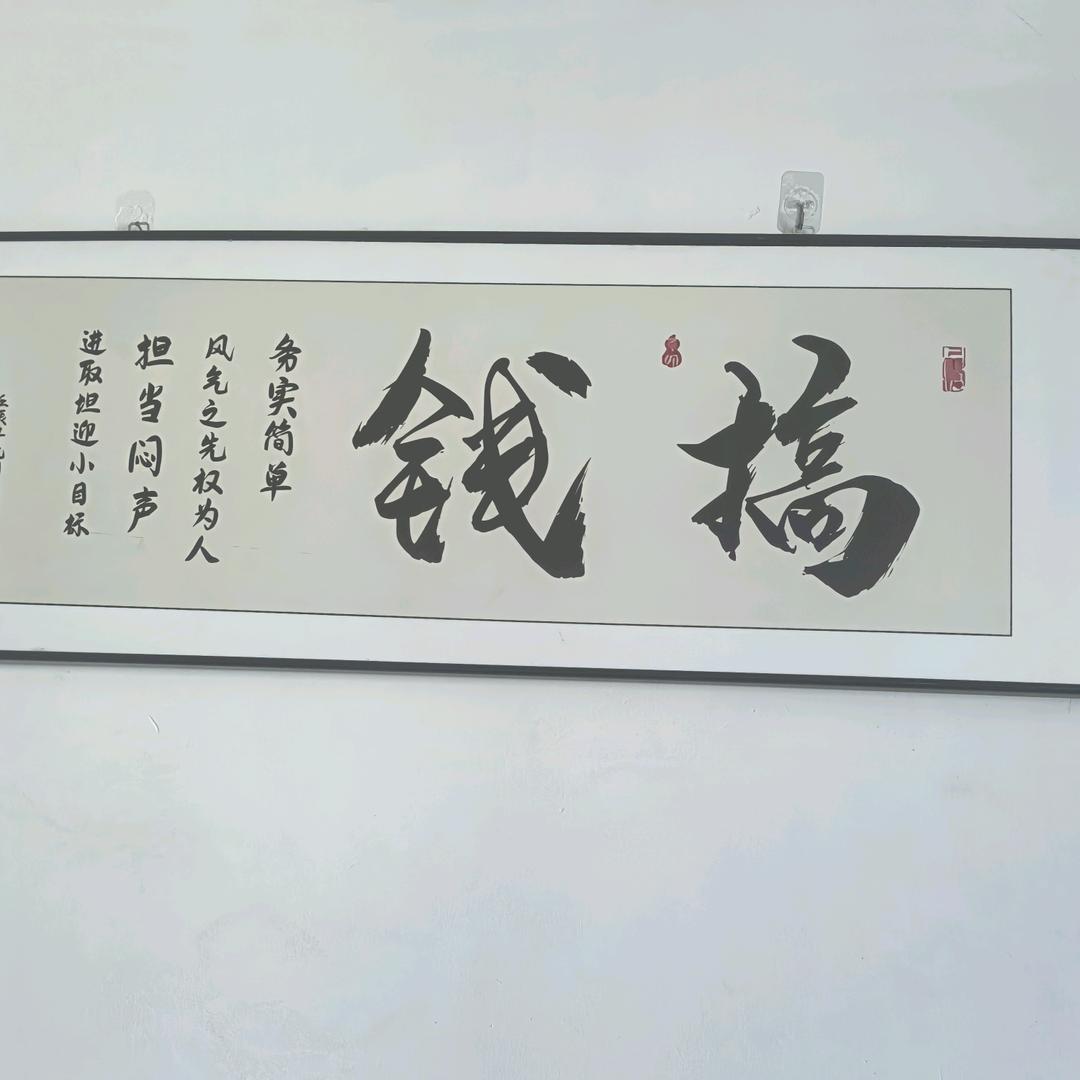 搞钱
务实简单
风气之先权为人
担当闷声
进取坦迎小目标